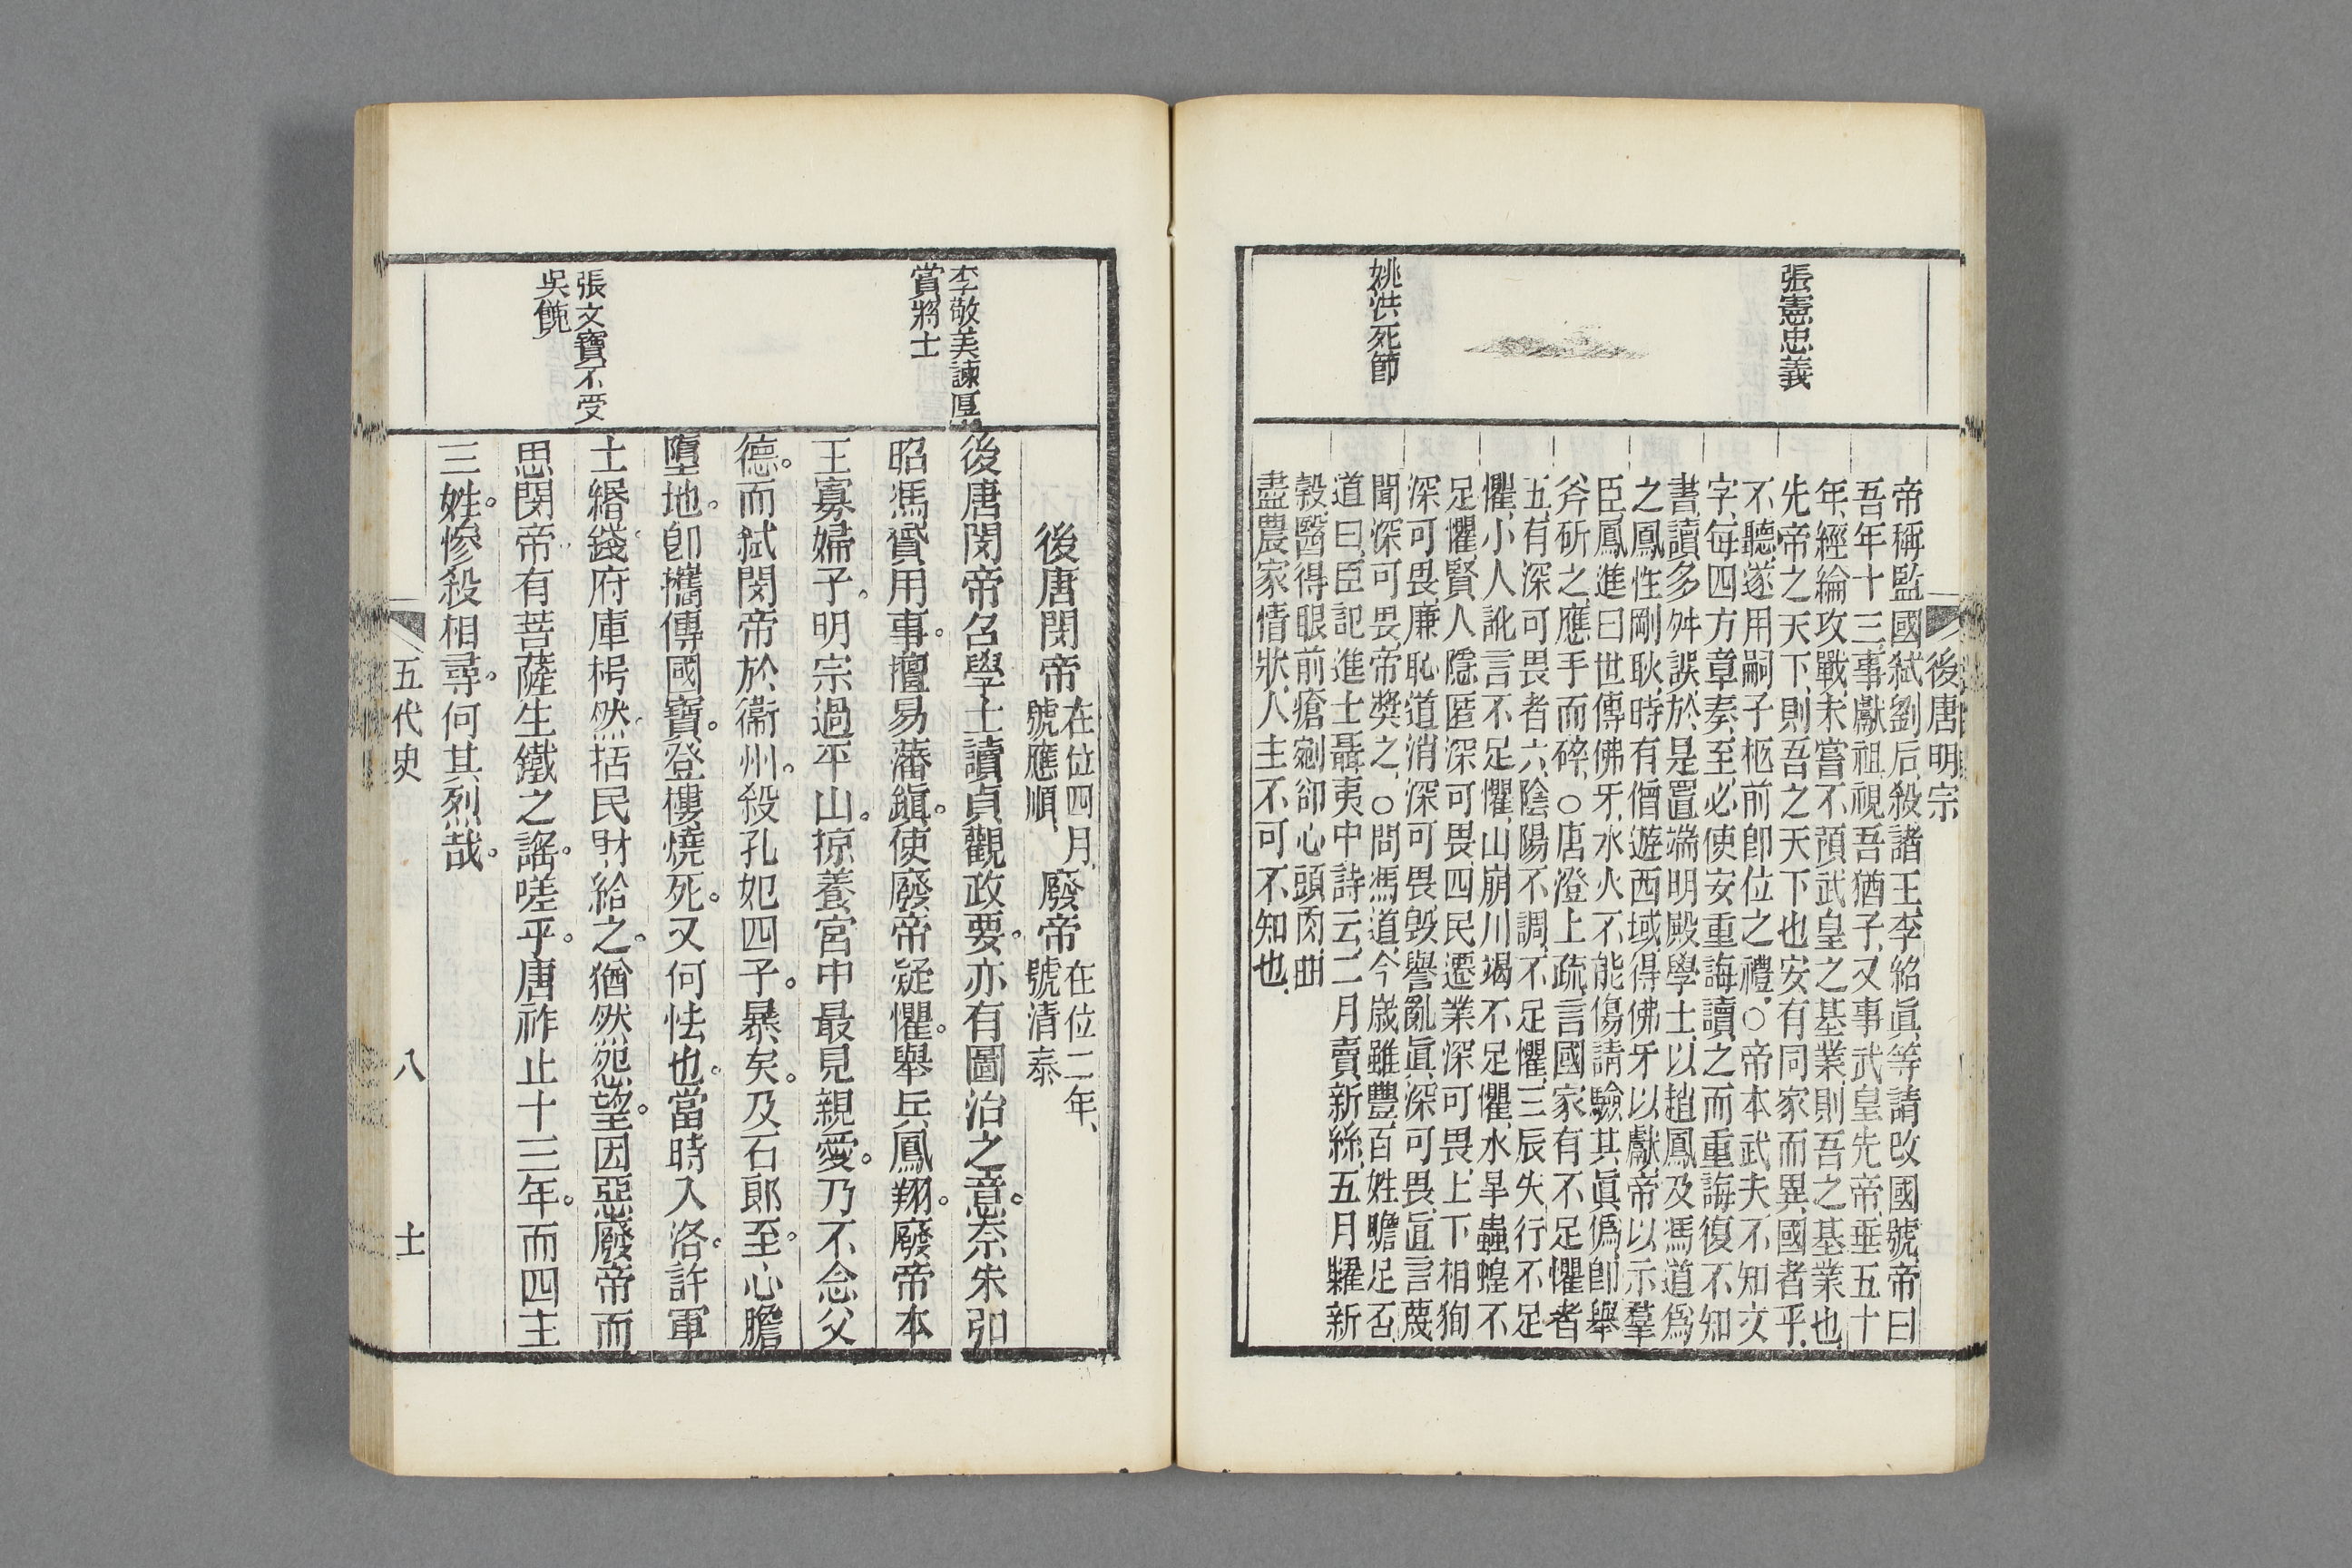 後唐明宗
張憲忠義
姚洪死節
帝稱監國弑劉后殺諸王李紹眞等請改國號帝曰
吾年十三事獻祖視吾猶子又事武皇先帝垂五十
年經綸攻戰未嘗不預武皇之基業則吾之基業也
先帝之天下則吾之天下也安有同家而異國者乎
不聽遂用嗣子柩前卽位之禮○帝本武夫不知文
字每四方章奏至必使安重誨讀之而重誨復不知
書讀多舛誤於是置端明殿學士以趙鳳及馮道爲
之鳳性剛耿時有僧遊西域得佛牙以獻帝以示羣
臣鳳進曰世傳佛牙水火不能傷請驗其眞僞卽舉
斧斫之應手而碎○唐澄上疏言國家有不足懼者
五有深可畏者六陰陽不調不足懼三辰失行不足
懼小人訛言不足懼山崩川竭不足懼水旱蟲蝗不
足懼賢人隱匿深可畏四民遷業深可畏上下相狥
深可畏廉恥道消深可畏毀譽亂眞深可畏直言蔑
聞深可畏帝奬之○問馮道今歲雖豐百姓贍足否
道曰臣記進士聶夷中詩云二月賣新絲五月糶新
穀醫得眼前瘡剜卻心頭肉曲
盡農家情狀人主不可不知也
李敬美諫厚
賞將士
張文寶不受
吳餽
後唐閔帝在位四月號應順 廢帝在位二年號清泰
後唐閔帝名學士讀貞觀政要亦有圖治之意奈朱弘
昭馮贇用事擅易藩鎭使廢帝疑懼舉兵鳳翔廢帝本
王寡婦子明宗過平山掠養宮中最見親愛乃不念父
德而弑閔帝於衞州殺孔妃四子暴矣及石郎至心膽
墮地卽攜傳國寶登樓燒死又何怯也當時入洛許軍
士緡錢府庫枵然括民財給之猶然怨望因惡廢帝而
思閔帝有菩薩生鐵之謠嗟乎唐祚止十三年而四主
三姓慘殺相尋何其烈哉
五代史 八 十